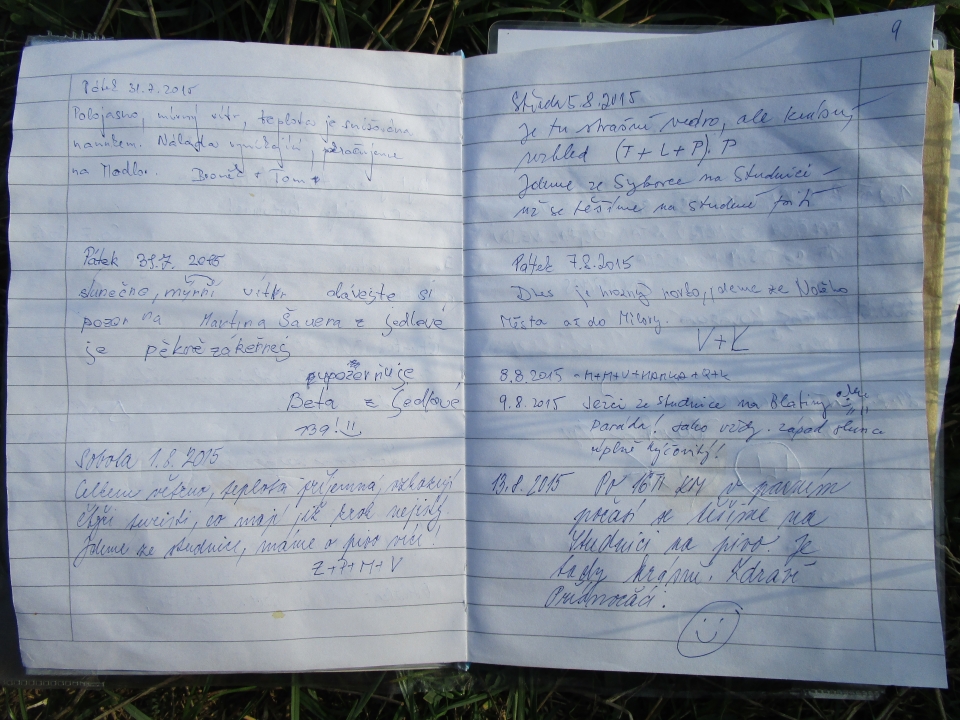 Pátek 31.7.2015
Polojasno, mírný vítr, teplota je snižována
vánkem. Nálada vynikající, pokračujeme
na Modlo. + Tom
Pátek 31.7. 2015
slunečno, mírní vítkr dávejte si
pozor na Martina Šauera z jedlové
je pěkně zákeřnéj
upozorňuje
Beta z Jedlové
139!
Sobota 1.8.2015
Celkem větrno, teplota příjemná, 
čtyři turisti, co mají již krok nejistý.
Jdeme ze studnice, máme o pivo víc!
Z+P+M+V
9
Středa 5.8.2015
Je tu strašné vedro, ale krásný
výhled (T+L+P). P
Jdeme ze Syborce na Studnici –
už se těšíme na studené pití
Pátek 7.8.2015
Dnes je hrozné horko, jdeme ze Nového
Města až do Milovy.
V+K
8.8.2015 -M+M+V+HANKA+R+K
9.8.2015 Ježci ze Studnice na Blatiny
Paráda! Jako vždy. západ slunce
úplně kýčovitý!
13.8.2015 Po 16ti km v parném
počasí se těšíme na
Studnici na pivo. Je
tady krásně. Zdraví